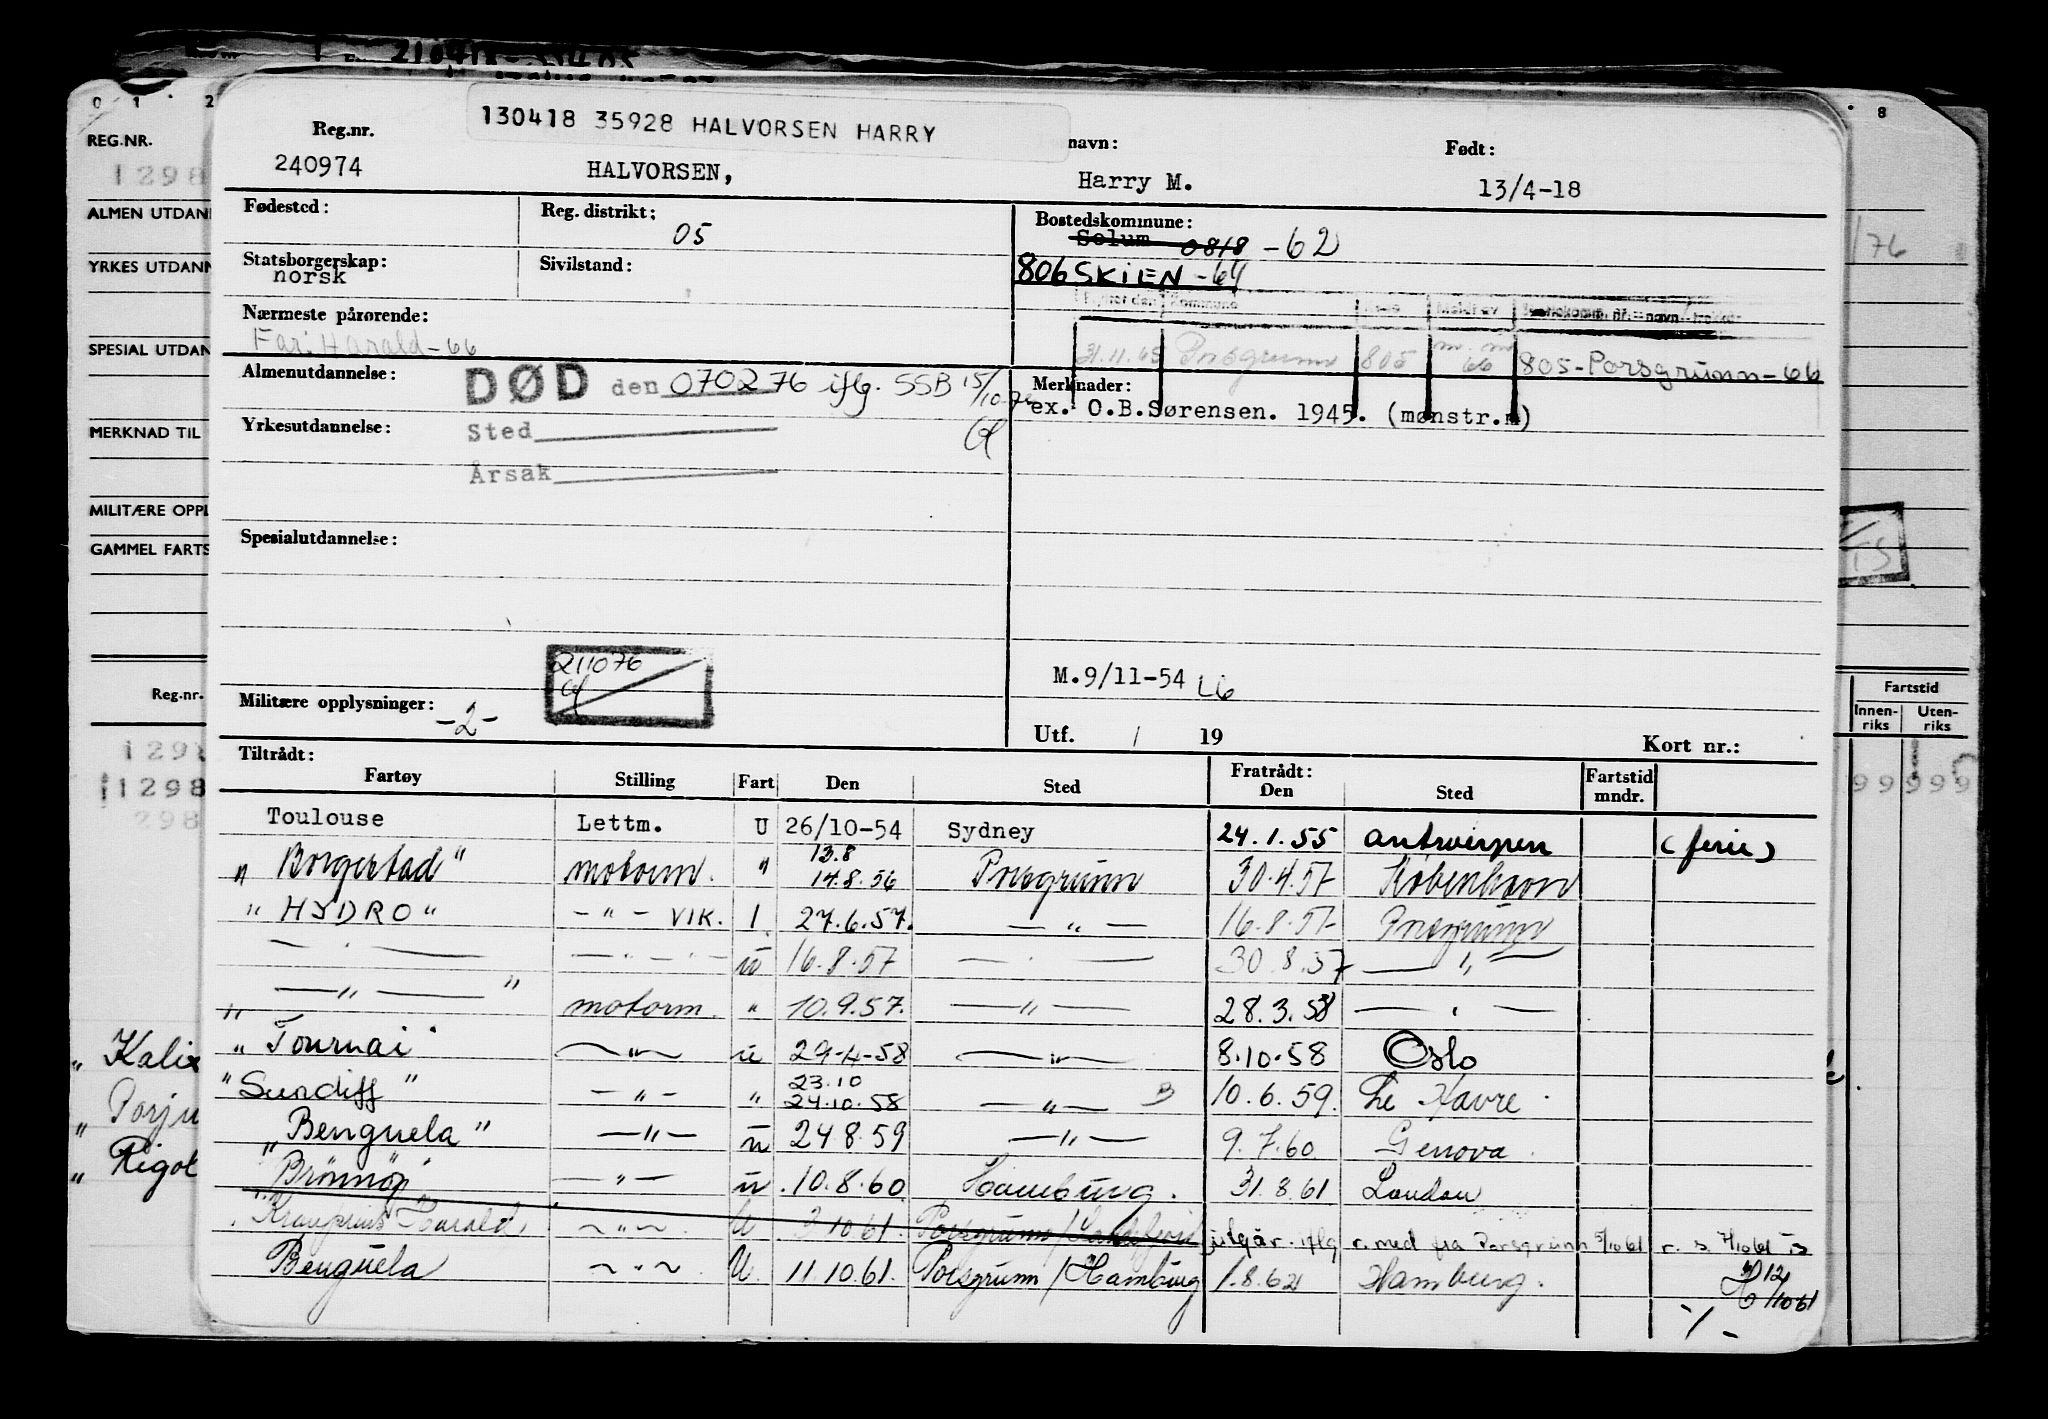 210418
0 1 2
8
REG.NR.
1298
ALMEN UTDAN
YRKES UTDANN
SPESIAL UTDAN
MERKNAD TIL
MILITÆRE OPPL
GAMMEL FARTS
Reg.nr.
1298
1298
298
„ Kalix
„ Porju
„ Rigol
/76
Fartstid
Innen-riks Uten-riks
99 999
130418 35928 HALVORSEN HARRY
Reg.nr. navn: Født:
240974 HALVORSEN, Harry M. 13/4-18
Fødested: Reg. distrikt: 05 Bostedskommune:
Solum 0818 -62
Statsborgerskap: norsk Sivilstand: 806 SKIEN -64
Nærmeste pårørende:
Far: Harald -66
31.11.65 Porsgrunn 805 66 805-Porsgrunn-66
Almenutdannelse: DØD den 070276 iflg. SSB 15/10-76
Merknader:
ex. O.B.Sørensen. 1945. (mønstr.m)
Yrkesutdannelse: Sted
Årsak
Spesialutdannelse:
211076
M.9/11-54 L6
Militære opplysninger: -2-
Utf. / 19 Kort nr.:
Tiltrådt: Fratrådt:
Fartøy Stilling Fart Den Sted Den Sted Fartstid mndr.
Toulouse Lettm. U 26/10-54 Sydney 24.1.55 Antwerpen (ferie)
„ Borgestad " motorm. " 13.8 14.8.56 Porsgrunn 30.4.57 København
" HYDRO " - " - VIK. I. 27.6.57. — " — 16.8.57 Porsgrunn
— " — — " — u 16.8.57 — " — 30.8.57 — " —
„ — " — " motorm. " 10.9.57. — " — 28.3.58 — " —
„ Tournai " — " — u 29-4-58 — " — 8.10.58 Oslo
" Sunndiff " - " - " 23.10 24.10.58 — " — B 10.6.59. Le Havre
„ Benguela " — " — u 24.8.59 — " — 9.7.60 Genova
" Brönnöy " — " — u 10.8.60 Hamburg. 31.8.61 London
" Kronprins Harald " ~ " ~ U 3.10.61 Porsgrunn / Sandefjord utgår. iflg r. med fra Porsgrunn 5/1061 r. s. 7/1061
Benguela ~ " ~ U. 11.10.61. Porsgrunn / Hamburg 1.8.62 Hamburg. 12/1061